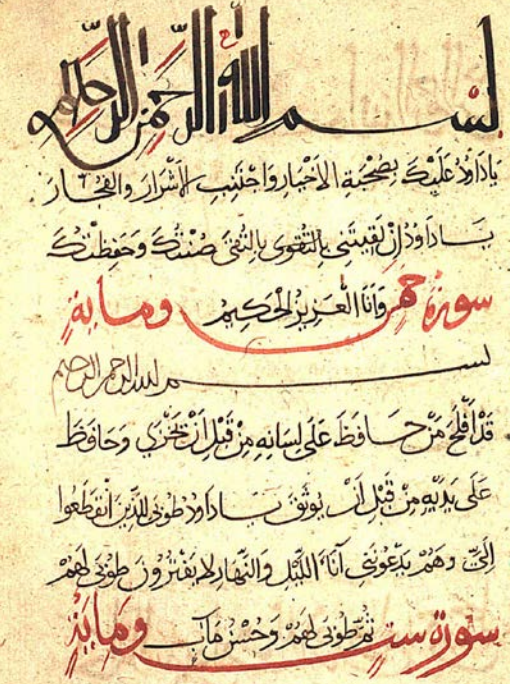 بسم الله الرحمن الرحيم
يا داود عليك بصحبة الاخيار واجتنب الاشرار والفجار
يا داود ان لقيتني بالتقوى بالتقى صنتك وحفظتك
وانا العزيز الحكيم سورة خمس وماية
بسم الله الرحمن الرحيم
قد أفلح من حافظ على لسانه من قبل ان يخزي وحافظ
على يديه من قبل ان يوثق يا داود طوبى للذين انقطعوا
إلي وهم يدعونني آناء الليل والنهار لا يفترون طوبى لهم
ثم طوبى لهم وحسن مآب سورة ست وماية